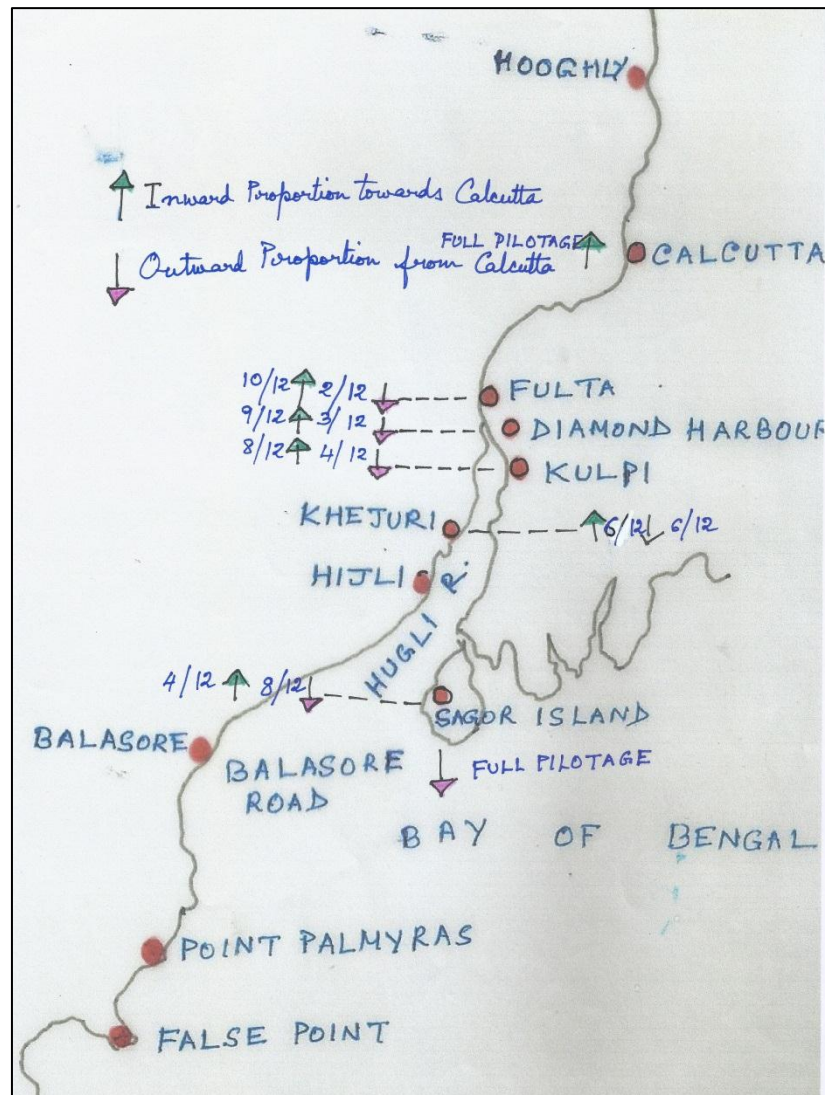 HOOGHLY
Inward Proportion towards Calcutta
FULL PILOTAGE
CALCUTTA
Outward Piroportion from Calcutta
10/12 2/12
FULTA
9/12 3/12
DIAMOND HARBOUR
8/12 4/12
KULPI
KHEJURI
6/12 6/12
HIJLI
HUGLI R.
4/12 8/12
SAGOR ISLAND
BALASORE
BALASORE
ROAD
FULL PILOTAGE
BAY OF BENGAL
POINT PALMYRAS
FALSE POINT